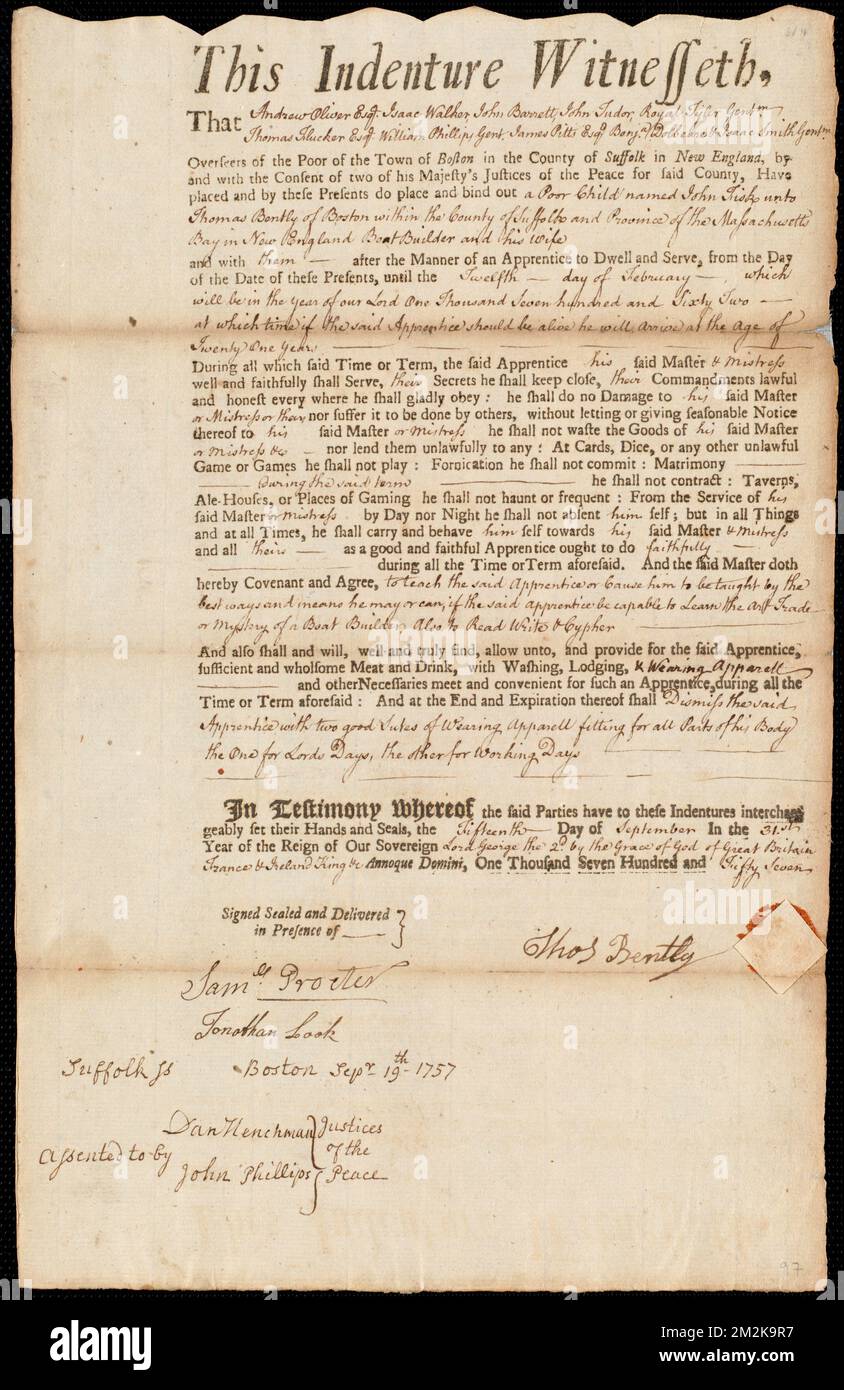 This Indenture Witnesseth,
That Andrew Oliver Esqr. Isaac Walker, John Barrett, John Tudor, Royal Tyler Gentm
Thomas Flucker Esqr. William Phillips Gent. James Pitts Esqr. Isaac Smith Gentm
Overseers of the Poor of the Town of Boston in the County of Suffolk in New England, by
and with the Consent of two of his Majesty's Justices of the Peace for said County, Have
placed and by these Presents do place and bind out a Poor Child named John Fisk unto
Thomas Bently of Boston within the County of Suffolk and Province of the Massachusetts
Bay in New England Boat Builder and his Wife
and with them — after the Manner of an Apprentice to Dwell and Serve, from the Day
of the Date of these Presents, until the Twelfth — day of February —, which
will be in the Year of our Lord One Thousand Seven hundred and Sixty Two —
at which time if the said Apprentice should be alive he will arrive at the Age of
Twenty One Years
During all which said Time or Term, the said Apprentice his said Master & Mistress
well and faithfully shall Serve, their Secrets he shall keep close, their Commandments lawful
and honest every where he shall gladly obey : he shall do no Damage to his said Master
or Mistress or their nor suffer it to be done by others, without letting or giving seasonable Notice
thereof to his said Master or Mistress he shall not waste the Goods of his said Master
or Mistress &c — nor lend them unlawfully to any : At Cards, Dice, or any other unlawful
Game or Games he shall not play : Fornication he shall not commit : Matrimony
during the said term he shall not contract : Taverns,
Ale-Houses, or Places of Gaming he shall not haunt or frequent : From the Service of his
said Master or Mistress by Day nor Night he shall not absent him self ; but in all Things
and at all Times, he shall carry and behave him self towards his said Master & Mistress
and all theirs — as a good and faithful Apprentice ought to do faithfully —
during all the Time or Term aforesaid. And the said Master doth
hereby Covenant and Agree, to teach the said Apprentice or Cause him to be taught by the
best ways and means he may or can, if the said Apprentice be capable to Learn the Art Trade
or Mystery of a Boat Builder, Also to Read Write & Cypher
And also shall and will, well and truly find, allow unto, and provide for the said Apprentice,
sufficient and wholsome Meat and Drink, with Washing, Lodging, & Wearing Apparell
and other Necessaries meet and convenient for such an Apprentice, during all the
Time or Term aforesaid : And at the End and Expiration thereof shall Dismiss the said
Apprentice with two good Sutes of Wearing Apparell fitting for all Parts of his Body
the One for Lords Days, the other for Working Days
In Testimony Whereof the said Parties have to these Indentures interchan-
geably set their Hands and Seals, the Fifteenth Day of September In the 31st
Year of the Reign of Our Sovereign Lord George the 2d by the Grace of God of Great Britain
France & Ireland King &c Annoque Domini, One Thousand Seven Hundred and Fifty Seven
Signed Sealed and Delivered
in Presence of
Thos Bently
Saml. Procter
Jonathan Look
Suffolk ss Boston Sepr. 19th 1757
Assented to by
Dan Henchman
John Phillips
Justices
of the
Peace
97
alamy
Image ID: 2M2K9R7
www.alamy.com